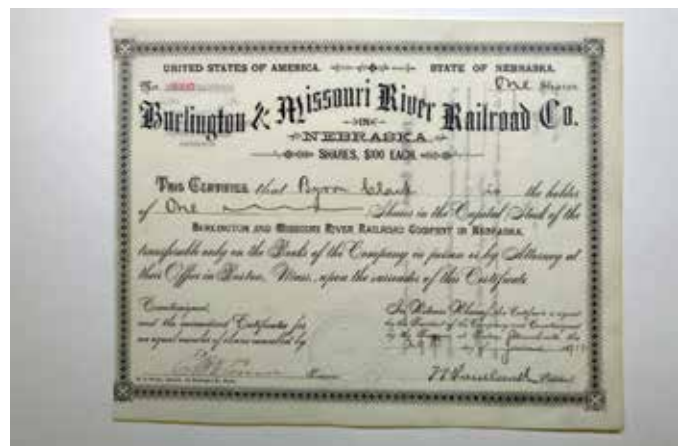 UNITED STATES OF AMERICA. STATE OF NEBRASKA.
No. One Shares
Burlington & Missouri River Railroad Co.
IN
NEBRASKA
SHARES, $100 EACH.
THIS CERTIFIES that Byron Clark is the holder
of One Shares in the Capital Stock of the
BURLINGTON AND MISSOURI RIVER RAILROAD COMPANY IN NEBRASKA,
transferable only on the Books of the Company in person or by Attorney at
their Office in Boston, Mass., upon the surrender of this Certificate.
Countersigned,
and the surrendered Certificates for
an equal number of shares cancelled by
In Witness Whereof, this Certificate is signed
by the President of the Company and Countersigned
by the